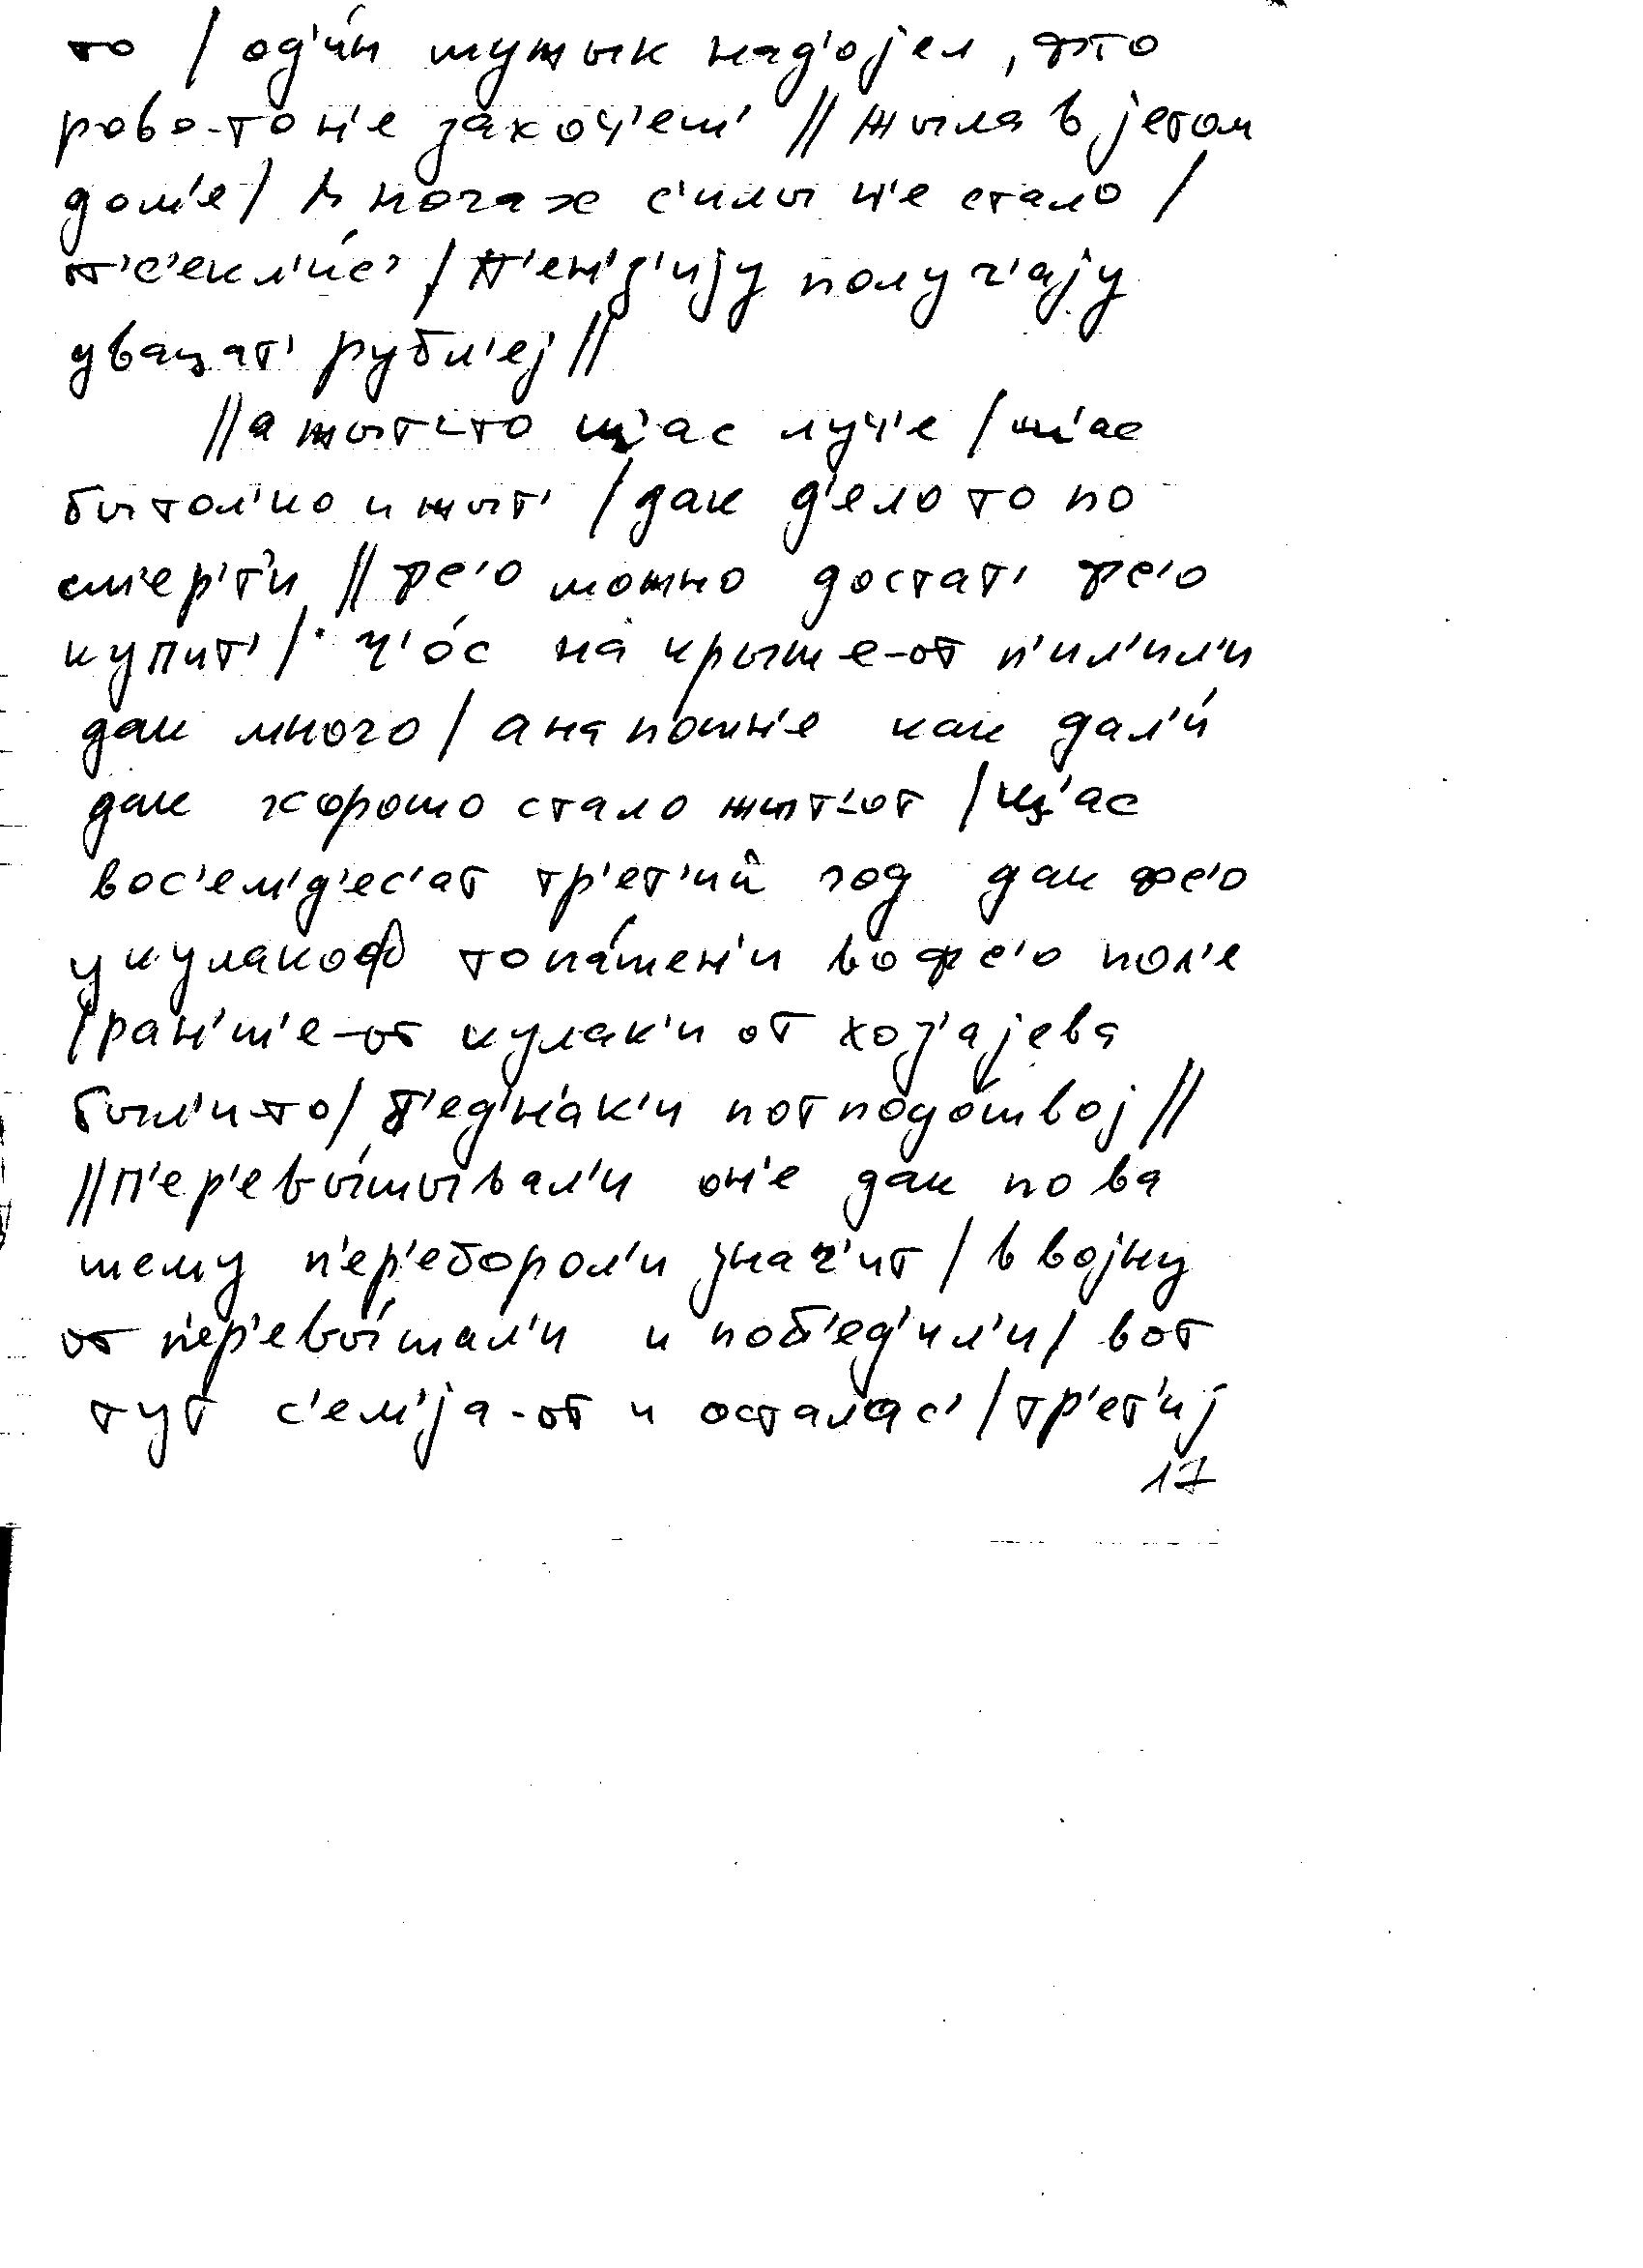 то / од'и́н мужык над'ојел, фто
рово-то н'е захоч'еш' // жыла в јетом
дом'е / в ногах с'илы н'е стало /
п'с'екл'и́с' / п'ен'з'ију получ'ају
двацат' рубл'еј //
// а жыт'-то щ'ас луч'е / щ'ас
бы тол'ко и жыт' / дак д'ело то по
см'ер'т'и // фс'о можно достат' фс'о
купит' / ч'о́с на крыше-от п'ил'ил'и
дак много / а на пошн'е как дал'и́
дак хорошо стало жыт'-от / щ'ас
вос'ем'д'ес'ат тр'ет'ий год дак фс'о
у кулакоф то па́шен'и во фс'о пол'е
/ ран'ш'е-от кулак'и от хоз'ајева
был'и-то / б'ед'н'ак'и пот подо́швој //
// п'ер'евы́шывал'и он'е дак по ва
шему п'ер'еборол'и знач'ит / в војну
от п'ер'евы́шал'и и поб'ед'ил'и / вот
тут с'ем'ја-от и осталас' / тр'ет'иј
17